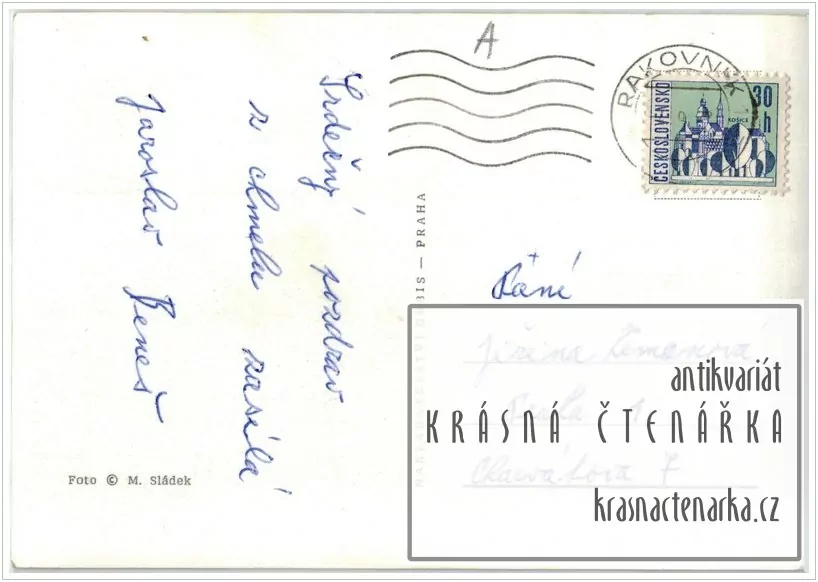 A
RAKOVNÍK
ČESKOSLOVENSKO
30
h
KOŠICE
Srdečný pozdrav
z chmelu zasílá
Jaroslav Beneš
Foto © M. Sládek
ORBIS — PRAHA
Paní
Jiřina Zemanová
Praha 1
7
antikvariát
KRÁSNÁ ČTENÁŘKA
krasnactenarka.cz